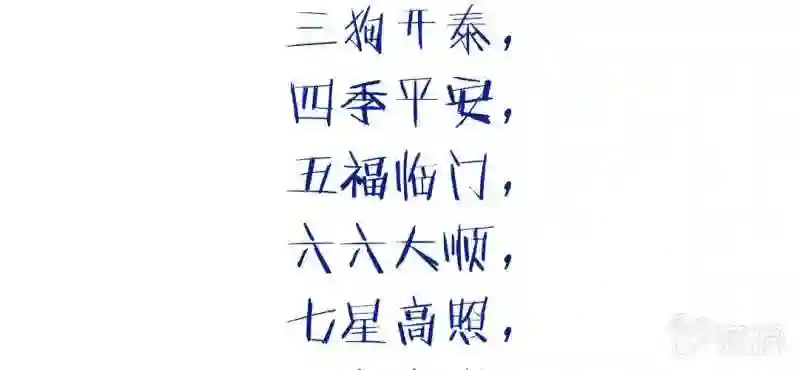 三狗开泰，
四季平安，
五福临门，
六六大顺，
七星高照，